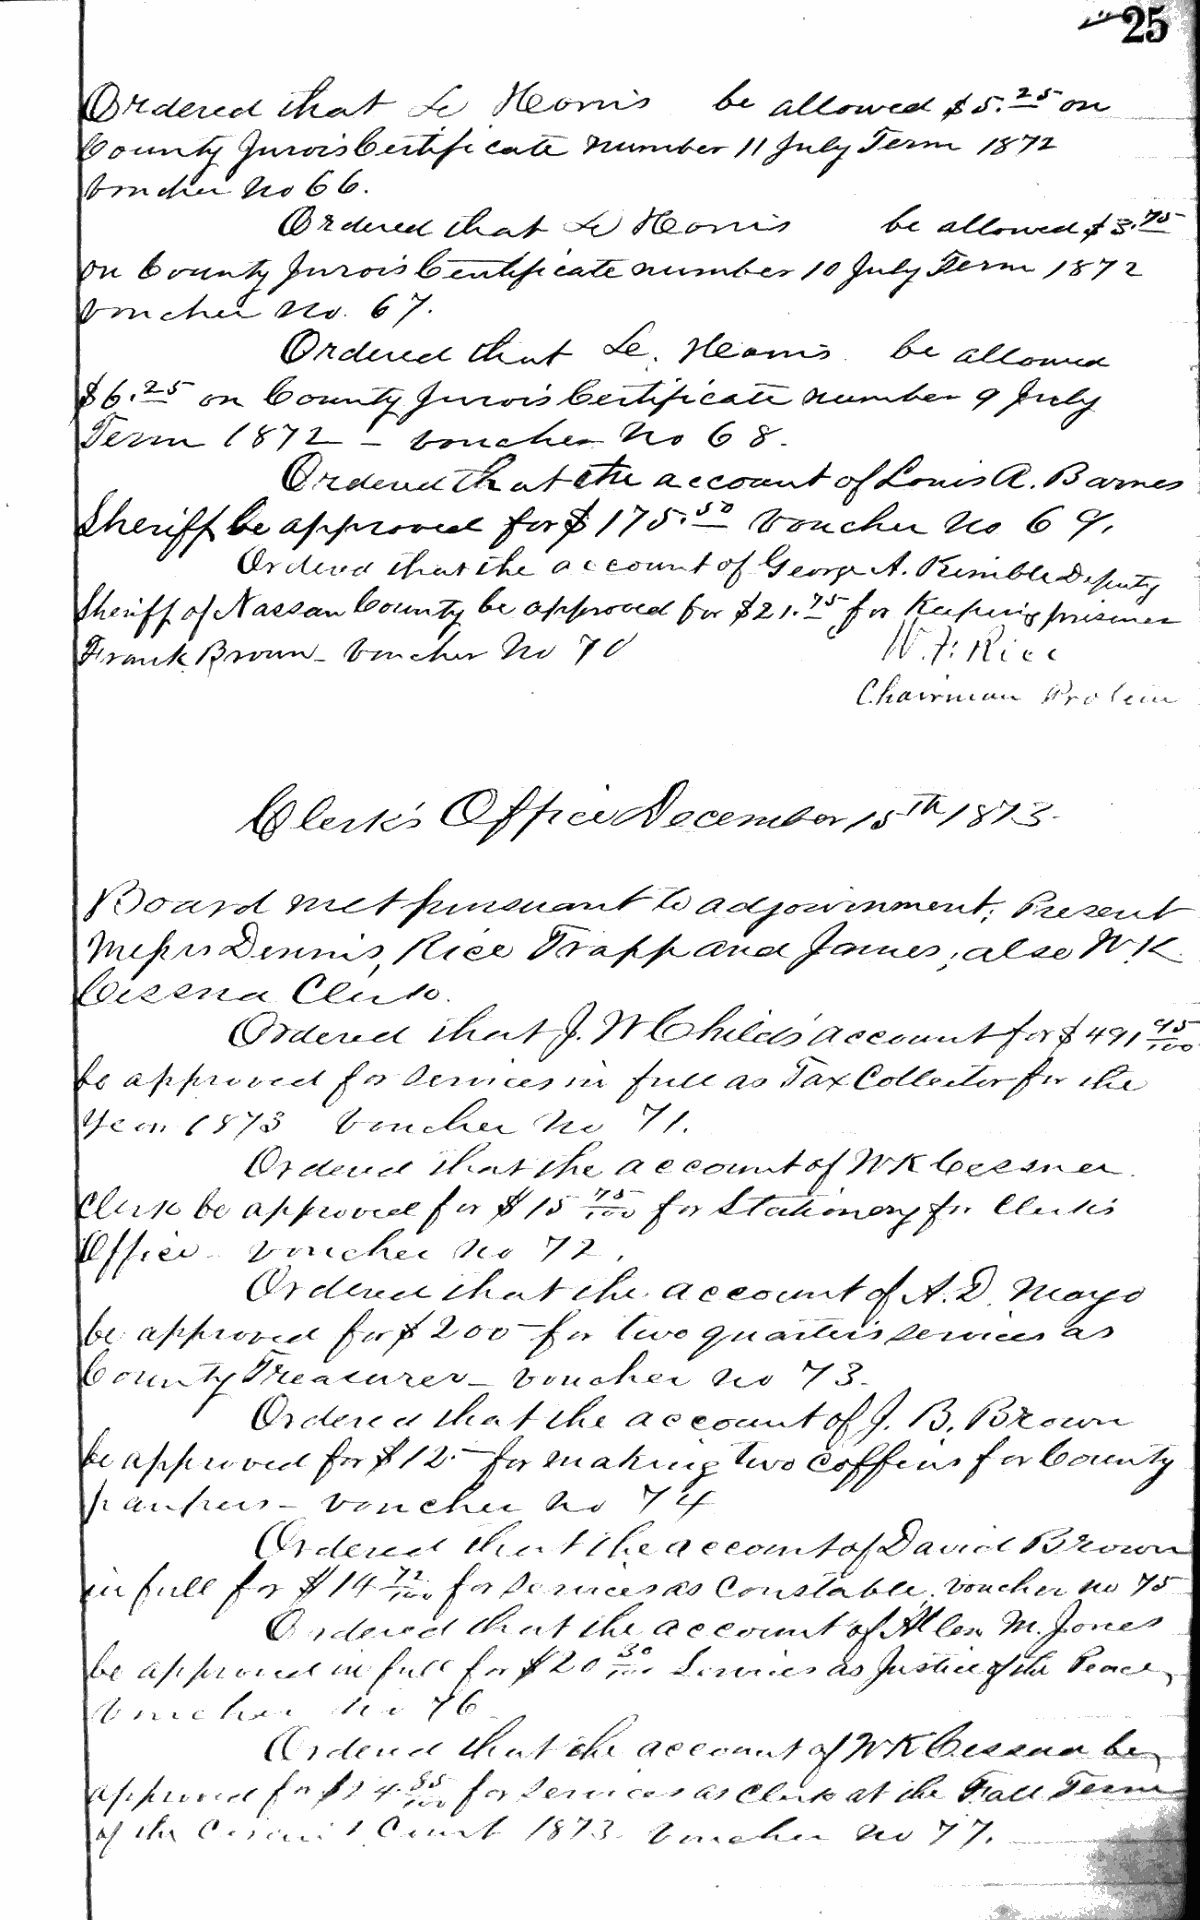 25
Ordered that Le Harris be allowed $5.25 on
County Jurors Certificate number 11 July Term 1872
Voucher No 66.
Ordered that Le Harris be allowed $3.75
on County Jurors Certificate number 10 July Term 1872
Voucher No. 67.
Ordered that Le. Harris be allowed
$6.25 on County Jurors Certificate number 9 July
Term 1872 - Voucher No 68.
Ordered that the account of Louis A. Barnes
Sheriff be approved for $175.50 Voucher No 69.
Ordered that the account of George A. Kimble Deputy
Sheriff of Nassau County be approved for $21.75 for Keeping prisoner
Frank Brown - Voucher No 70
W. F. Rice
Chairman Protem
Clerk's Office December 15th 1873.
Board met pursuant to adjournment; Present
Messrs Dennis, Rice Trapp and James; also W.K.
Cessna Clerk.
Ordered that J. W Childs' account for $491 95/100
be approved for services in full as Tax Collector for the
Year 1873 Voucher No 71.
Ordered that the account of WK Cessna
Clerk be approved for $15 75/100 for Stationery for Clerk's
Office - Voucher No 72.
Ordered that the account of A. D. Mayo
be approved for $200 - for two quarters services as
County Treasurer - Voucher No 73.
Ordered that the account of J. B. Brown
be approved for $12.- for making two coffins for County
paupers - Voucher No 74
Ordered that the account of David Brown
in full for $14 72/100 for services as Constable. Voucher no 75
Ordered that the account of Allen M. Jones
be approved in full for $20 30/100 Services as Justice of the Peace,
Voucher No 76
Ordered that the account of WK Cessna be
approved for 55/100 for services as Clerk at the Fall Term
of the Circuit Court 1873. Voucher No 77.